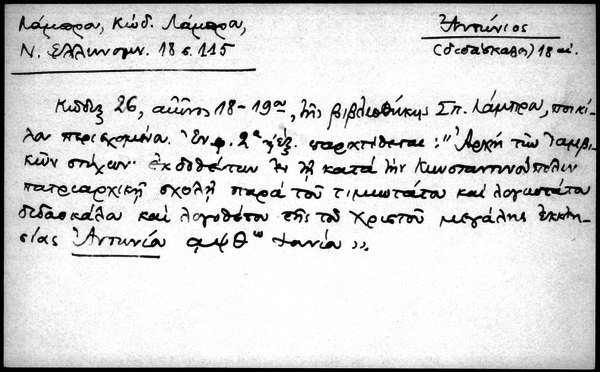 Λάμπρα, Κώδ. Λάμπρα,
Ν. Ελληνομν. 18 σ. 115
Ἀντώνιος
(διδάσκαλος) 18 αἰ.
Κῶδιξ 26, αἰῶνος 18-19ου, τῆς βιβλιοθήκης Σπ. Λάμπρα, ποικί-
λου περιεχομένου. Ἐν φ. 2α ἑξ. παρατίθεται: "Ἀρχὴ τῶν ἰαμβι-
κῶν στίχων ἐκδοθέντων ἐν τῇ κατὰ τὴν Κωνσταντινούπολιν
πατριαρχικῇ σχολῇ παρὰ τοῦ τιμιωτάτου καὶ λογιωτάτου
διδασκάλου καὶ λογοθέτου τῆς τοῦ Χριστοῦ μεγάλης ἐκκλη-
σίας Ἀντωνίου αψθω